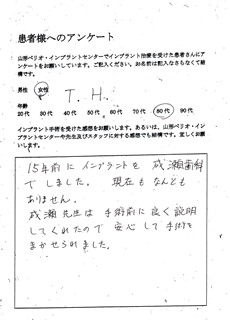 患者様へのアンケート
山形ペリオ・インプラントセンターでインプラント治療を受けた患者さんにア
ンケートをお願いしています。ご記入ください。お名前は記入なさらなくて結
構です。
男性 女性 T. H.
年齢
20代 30代 40代 50代 60代 70代 80代 90代
インプラント手術を受けた感想をお願いします。あるいは、山形ペリオ・イン
プラントセンターや先生及びスタッフに対する感想でも結構です。宜しくお願
いします。
15年前にインプラントを成瀬歯科
でしました。現在もなんとも
ありません。
成瀬先生は手術前に良く説明
してくれたので安心して手術を
まかせられました。